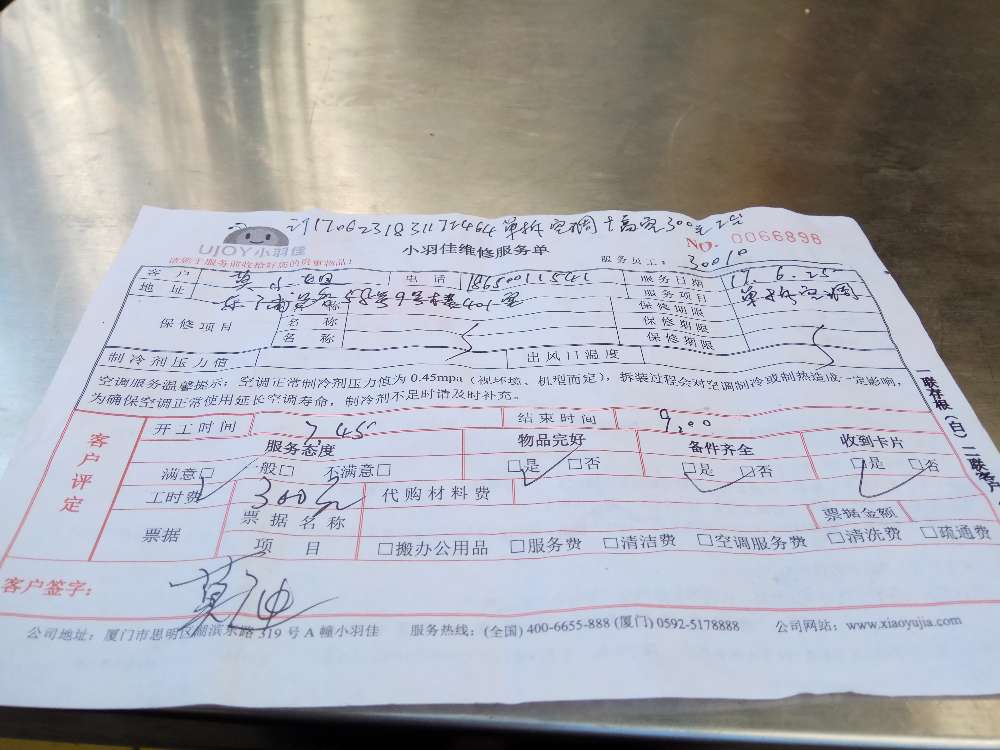 单拆空调 + 高空300元2台
UJOY小羽佳
小羽佳维修服务单
NO. 0066898
请您于服务前收拾好您的贵重物品!
服务员工: 30010
客户 莫小姐 电话 服务日期 17.6.25
地址 服务项目 单拆空调
保修项目 名称 保修期限
名称 保修期限
名称 保修期限
制冷剂压力值 出风口温度
空调服务温馨提示: 空调正常制冷剂压力值为 0.45mpa (视环境、机型而定), 拆装过程会对空调制冷或制热造成一定影响,
为确保空调正常使用延长空调寿命, 制冷剂不足时请及时补充。
客户评定
开工时间 7.45 结束时间 9.00
服务态度 物品完好 备件齐全 收到卡片
满意□ 一般□ 不满意□ □是 □否 □是 □否 □是 □否
工时费 300元 代购材料费
票据 票据名称 票据金额
项目 □搬办公用品 □服务费 □清洁费 □空调服务费 □清洗费 □疏通费
客户签字:
公司地址: 厦门市思明区湖滨东路 319 号 A 幢小羽佳 服务热线: (全国) 400-6655-888 (厦门) 0592-5178888 公司网站: www.xiaoyujia.com
一联存根 (白) 二联客户